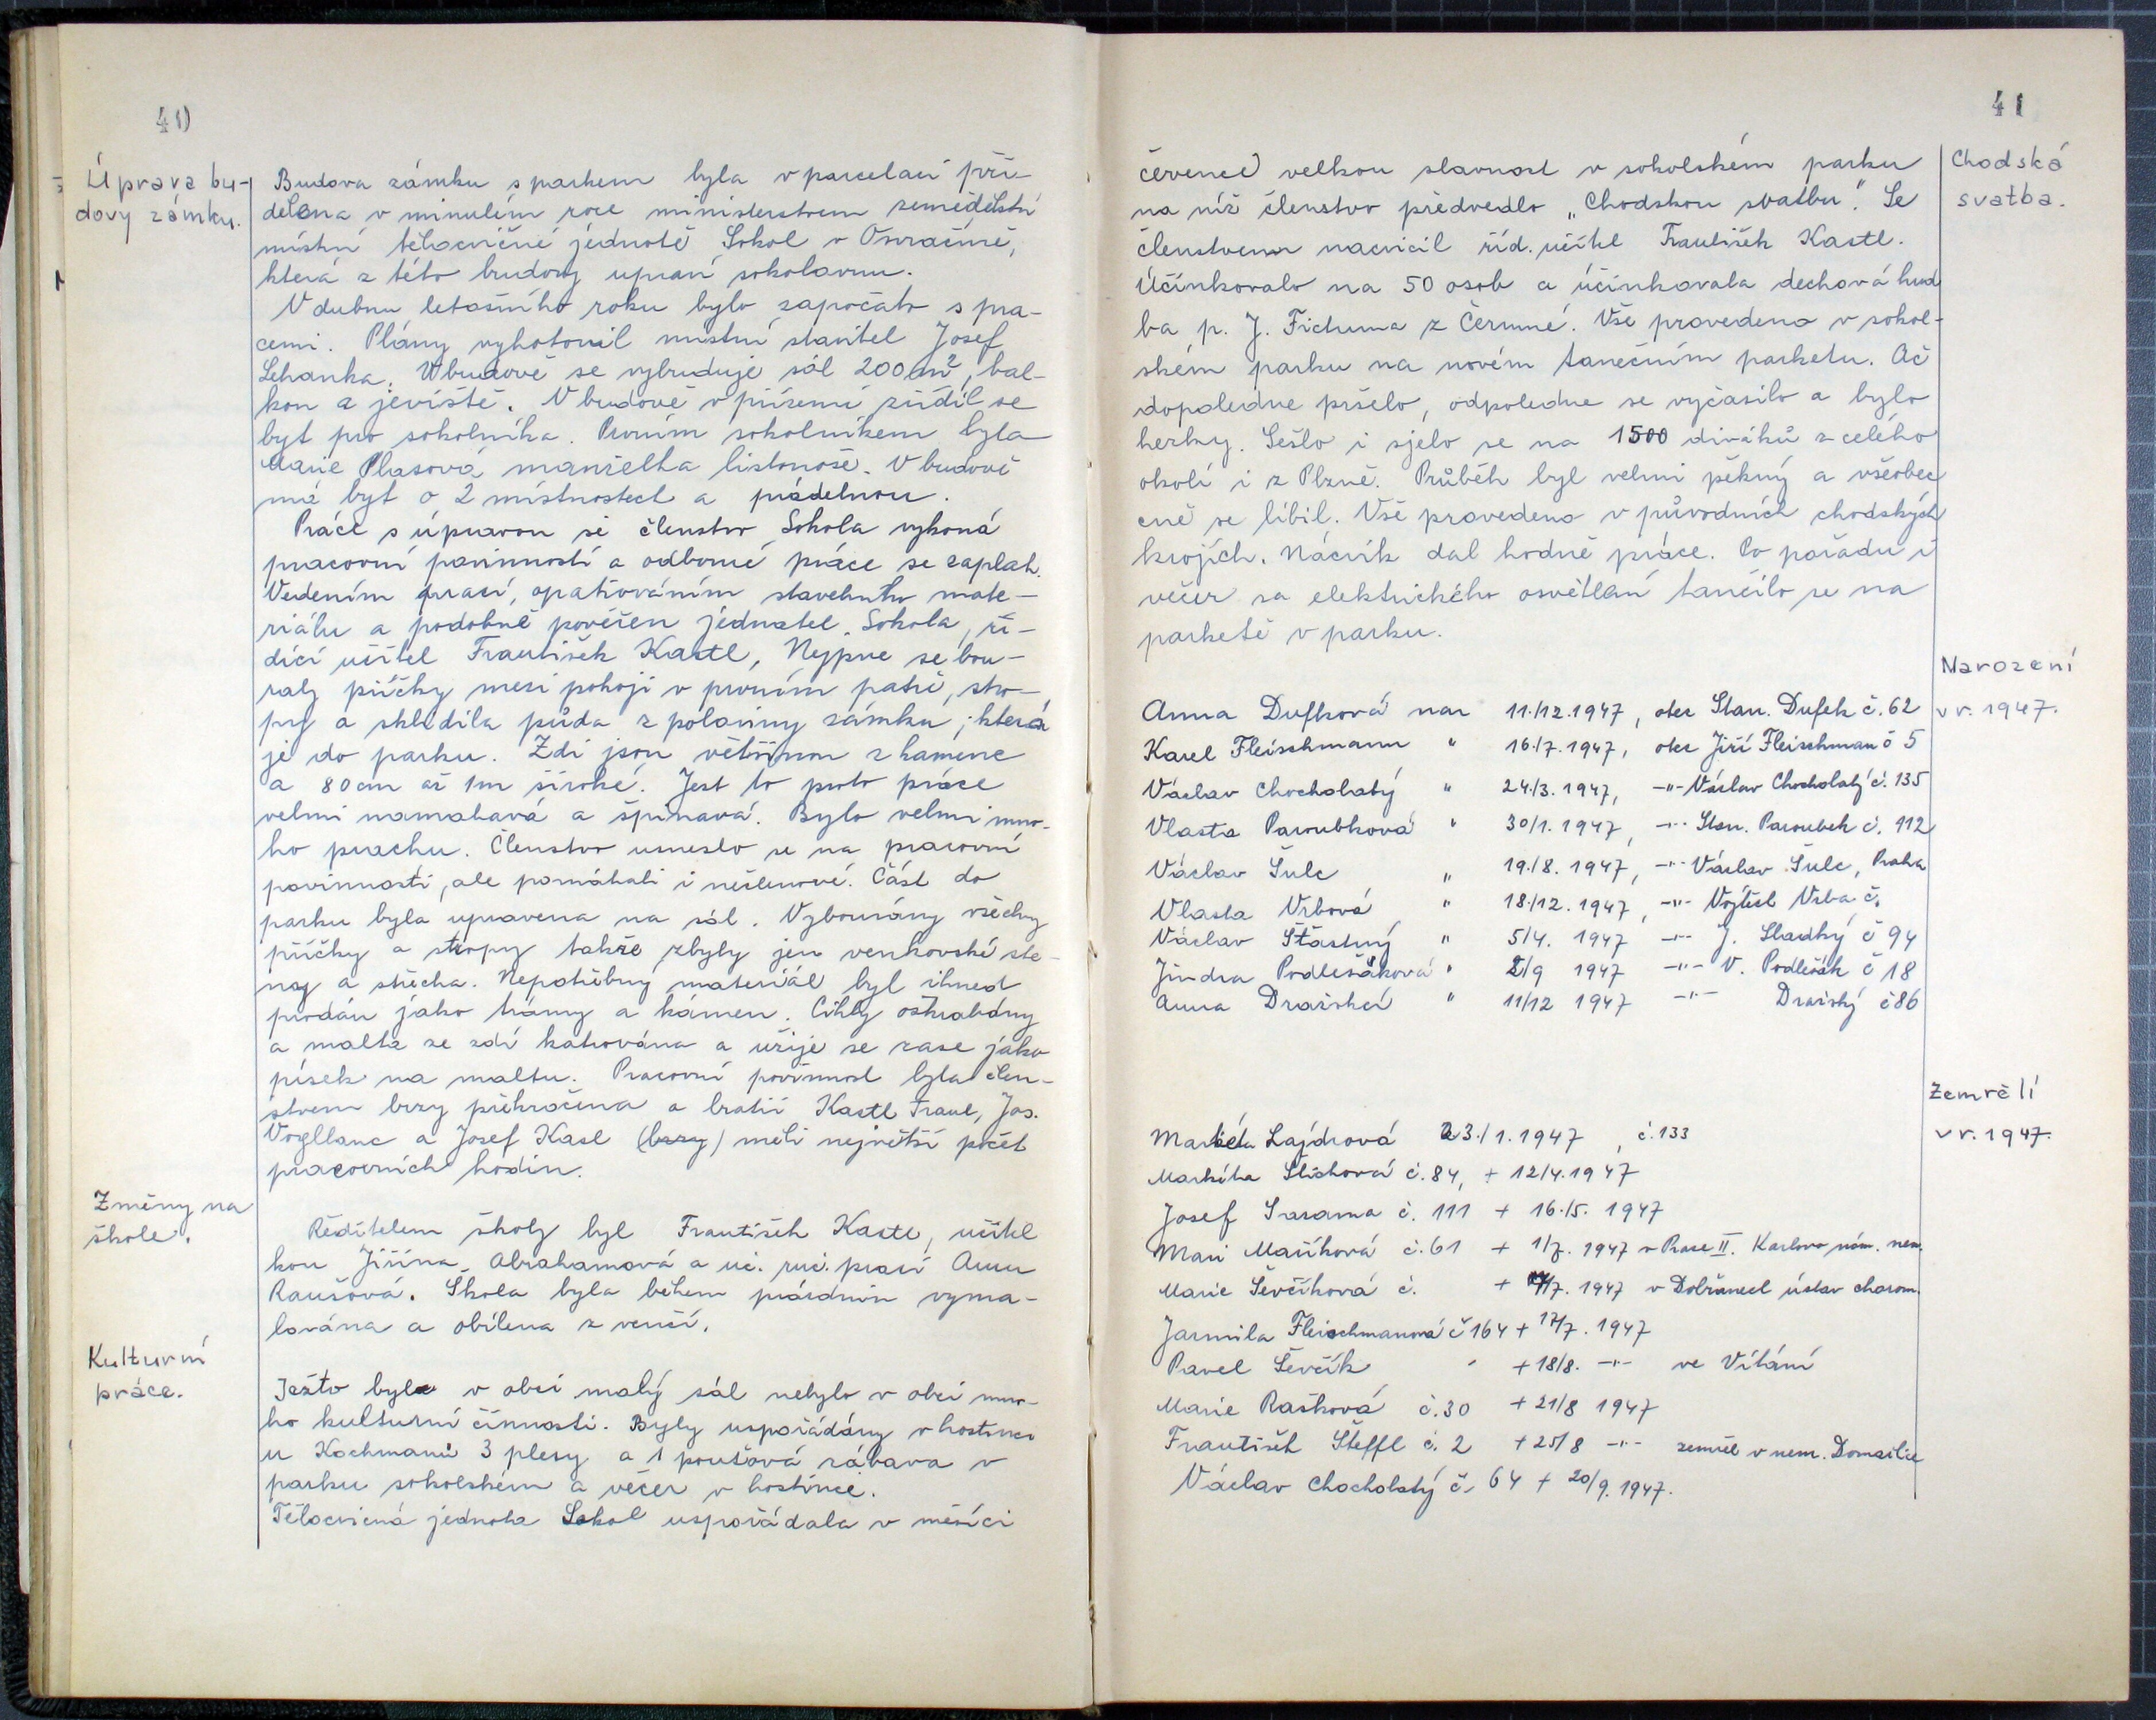 40
Úprava bu-
dovy zámku.
Budova zámku s parkem byla v parcelaci při-
dělena v minulém roce ministerstvem zemědělství
místní tělocvičné jednotě Sokol v Osvračíně,
která z této budovy upraví sokolovnu.
V dubnu letošního roku bylo započato s pra-
cemi. Plány vyhotovil místní stavitel Josef
Lehanka. V budově se vybuduje sál 200 m², bal-
kon a jeviště. V budově v přízemí zřídil se
byt pro sokolníka. Prvním sokolníkem byla
Marie Plasová manželka listonoše. V budově
má byt o 2 místnostech a prádelnou.
Práce s úpravou si členstvo Sokola vykoná
pracovní povinností a odborné práce se zaplatí.
Vedením prací, opatřováním stavebního mate-
riálu a podobně pověřen jednatel Sokola, ří-
dící učitel František Kastl, Nejprve se bou-
raly příčky mezi pokoji v prvním patře, stro-
py a sklidila půda z poloviny zámku, která
je do parku. Zdi jsou většinou z kamene
a 80 cm až 1m široké. Jest to proto práce
velmi namahavá a špinavá. Bylo velmi mno-
ho prachu. Členstvo usneslo se na pracovní
povinnosti, ale pomáhali i nečlenové. Část do
parku byla upravena na sál. Vybourány všechny
příčky a stropy takže zbyly jen venkovské stě-
ny a střecha. Nepotřebný materiál byl ihned
prodán jako trámy a kámen. Cihly oškrabány
a malta ze zdí katrována a užije se zase jako
písek na maltu. Pracovní povinnost byla člen-
stvem brzy překročena a bratři Kastl Frant, Jos.
Vogllanc a Josef Kasl (brzy) měli největší počet
pracovních hodin.
Změny na
škole.
Ředitelem školy byl František Kastl, učitel
kou Jiřina Abrahamová a uč. ruč. prací Anna
Raušová. Škola byla během prázdnin vyma-
lována a obílena z venčí.
Kulturní
práce.
Ježto byl v obci malý sál nebylo v obci mno-
ho kulturní činnosti. Byly uspořádány v hostinci
u Kochmanů 3 plesy a 1 pouťová zábava v
parku sokolském a večer v hostinci.
Tělocvičná jednota Sokol uspořádala v měsíci
41
červenci velkou slavnost v sokolském parku
na níž členstvo předvedlo „Chodskou svatbu". Se
členstvem nacvičil říd. učitel František Kastl.
Účinkovalo na 50 osob a účinkovala dechová hud
ba p. J. Fichuma z Čermné. Vše provedeno v sokol-
ském parku na novém tanečním parketu. Ač
dopoledne pršelo, odpoledne se vyčasilo a bylo
hezky. Sešlo i sjelo se na 1500 diváků z celého
okolí i z Plzně. Průběh byl velmi pěkný a všeobec
cně se líbil. Vše provedeno v původních chodských
krojích. Nácvik dal hodně práce. Po pořadu i
večer za elektrického osvětlení tančilo se na
parketě v parku.
Chodská
svatba.
Narození
v r. 1947.
Anna Dufková nar 11./12.1947, otec Stan. Dufek č. 62
Karel Fleischmann " 16./7.1947, otec Jiří Fleischman č 5
Václav Chocholatý " 24./3.1947, -"- Václav Chocholatý č. 135
Vlasta Paroubková " 30/1. 1947, -"- Stan. Paroubek č. 112
Václav Šulc " 19./8. 1947, -"- Václav Šulc, Praha
Vlasta Vrbová " 18./12. 1947, -"- Vojtěch Vrba č.
Václav Šťastný " 5/4. 1947 -"- J. Sladký č 94
Jindra Podlešáková " 2/9 1947 -"- V. Podlešák č 18
Anna Dražská " 11/12 1947 -"- Dražský č 86
Zemřelí
v r. 1947.
Markéta Lajdrová 23./1.1947, č. 133
Markéta Slichová č. 84, + 12/4.1947
Josef Sarama č. 111 + 16./5. 1947
Mari Maříková č. 61 + 1/7. 1947 v Praze II. Karlovo nám. nem.
Marie Ševčíková č. + /7. 1947 v Dobřanech ústav charom.
Jarmila Fleischmanová č 164 + 17/7. 1947
Pavel Ševčík " + 18/8. -"- ve Vítání
Marie Rašková č. 30 + 21/8 1947
František Šteffl č. 2 + 25/8 -"- zemřel v nem. Domažlice
Václav Chocholatý č. 64 + 20/9. 1947.